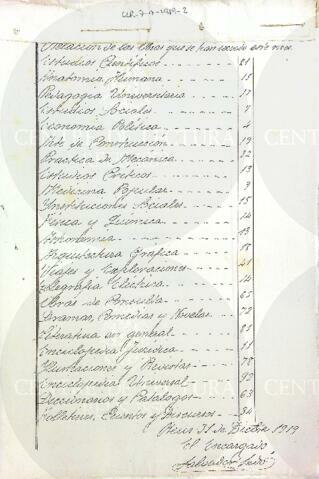 CLR-7-A-1919-2
Relación de los libros que se han servido este mes.
Estudios Científicos - - - 21
Anatomía Humana - - - 15
Pedagogía Universitaria - - 17
Estudios Sociales - - - 7
Economía Política - - - 4
Arte de Construcción - - 19
Práctica de Mecánica - - 22
Estudios Críticos - - - 13
Medicina Popular - - - 9
Instituciones Sociales - - 15
Física y Química - - - 14
Astronomía - - - 13
Arquitectura Gráfica - - 18
Viajes y Exploraciones - - 41
Telegrafía Eléctrica - - 14
Obras de Consulta - - - 65
Dramas, Comedias y Novelas - - 72
Literatura en general - - - 81
Enciclopedia Jurídica - - - 11
Ilustraciones y Revistas - - 78
Enciclopedia Universal - - 92
Diccionarios y Catálogos - - 63
Folletos, Cuentos y Discursos - - 34
Reus 31 de Dicbre 1919
El Encargado
Salvador
CENTRE LECTURA